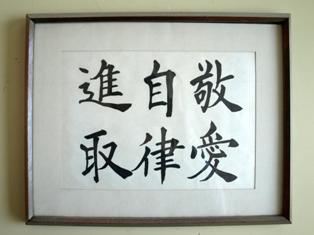 敬愛
自律
進取